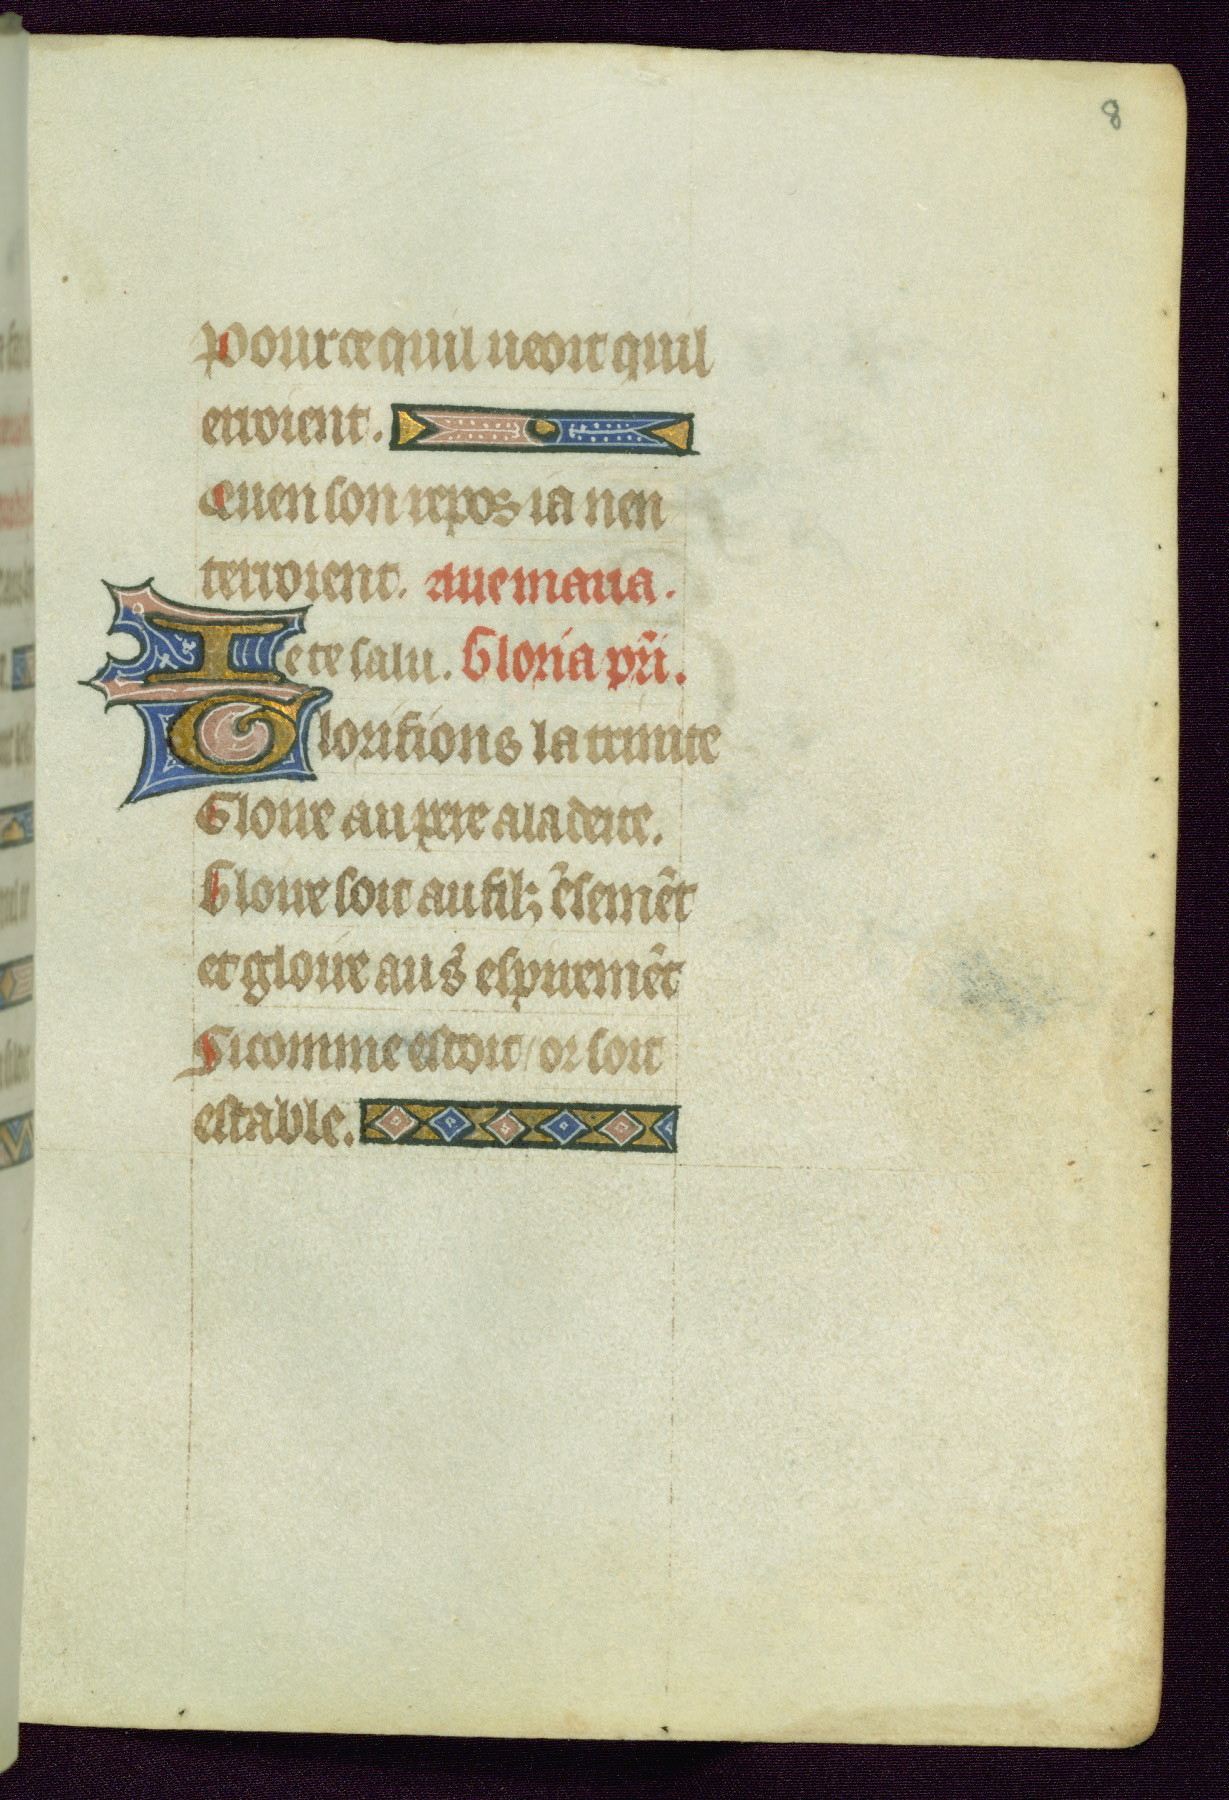 8
Pour ce quil ueoit quil
erroient.
Quen son repos ia nen
terroient. aue maria.
Ie te salu. Gloria pr̃i.
Glorifions la trinite
Gloire au pere a la deite.
Gloire soit au filz ẽsemẽt
et gloire au s̃ espiremẽt
Si comme estoit / or soit
estable.